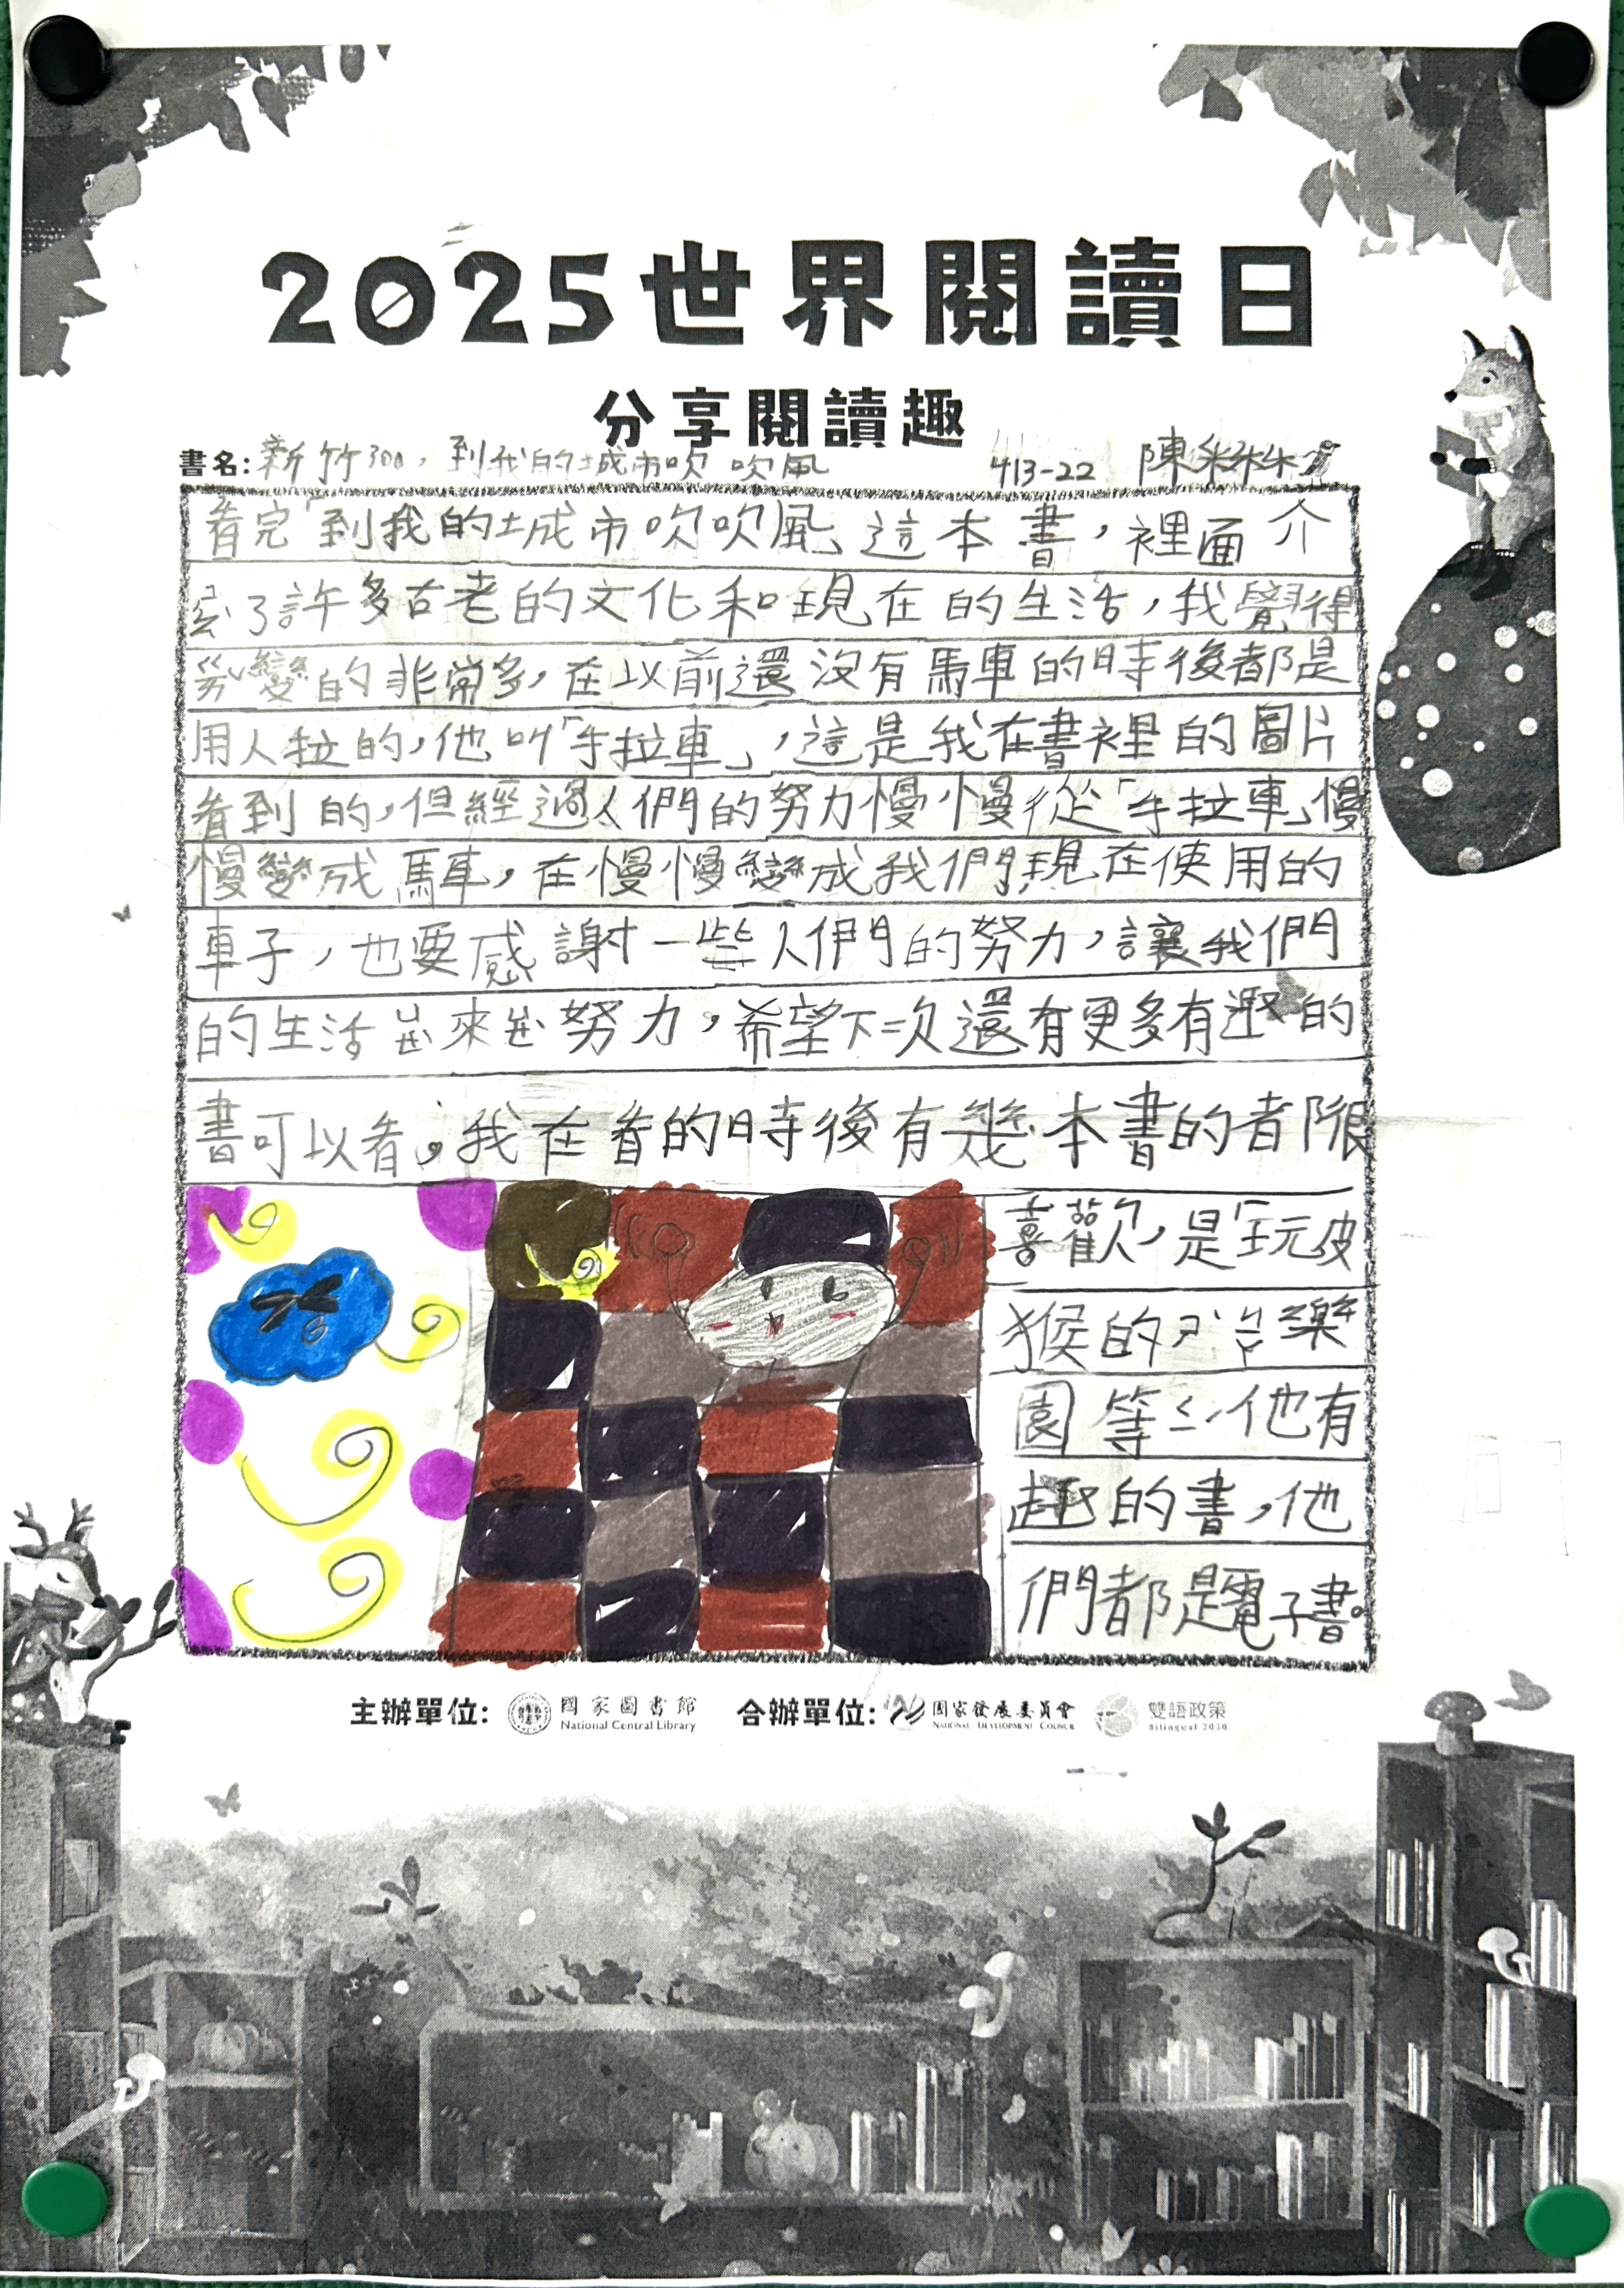 2025世界閱讀日
分享閱讀趣
書名:新竹300,到我的城市吹吹風
413-22 陳
看完「到我的城市吹吹風」這本書,裡面介
ㄕㄠˋ了許多古老的文化和現在的生活,我覺得
變的非常多,在以前還沒有馬車的時後都是
用人拉的,他叫「手拉車」,這是我在書裡的圖片
看到的,但經過人們的努力慢慢從「手拉車」慢
慢變成馬車,在慢慢變成我們現在使用的
車子,也要感謝一些人們的努力,讓我們
的生活ㄩㄝˋ來ㄩㄝˋ努力,希望下次還有更多有趣的
書可以看。我在看的時後有幾本書的者限
喜歡,是「玩皮
猴的 樂
園等…他有
趣的書,他
們都是電子書。
主辦單位: 國家圖書館 National Central Library 合辦單位: 國家發展委員會 NATIONAL DEVELOPMENT COUNCIL 雙語政策 Bilingual 2030